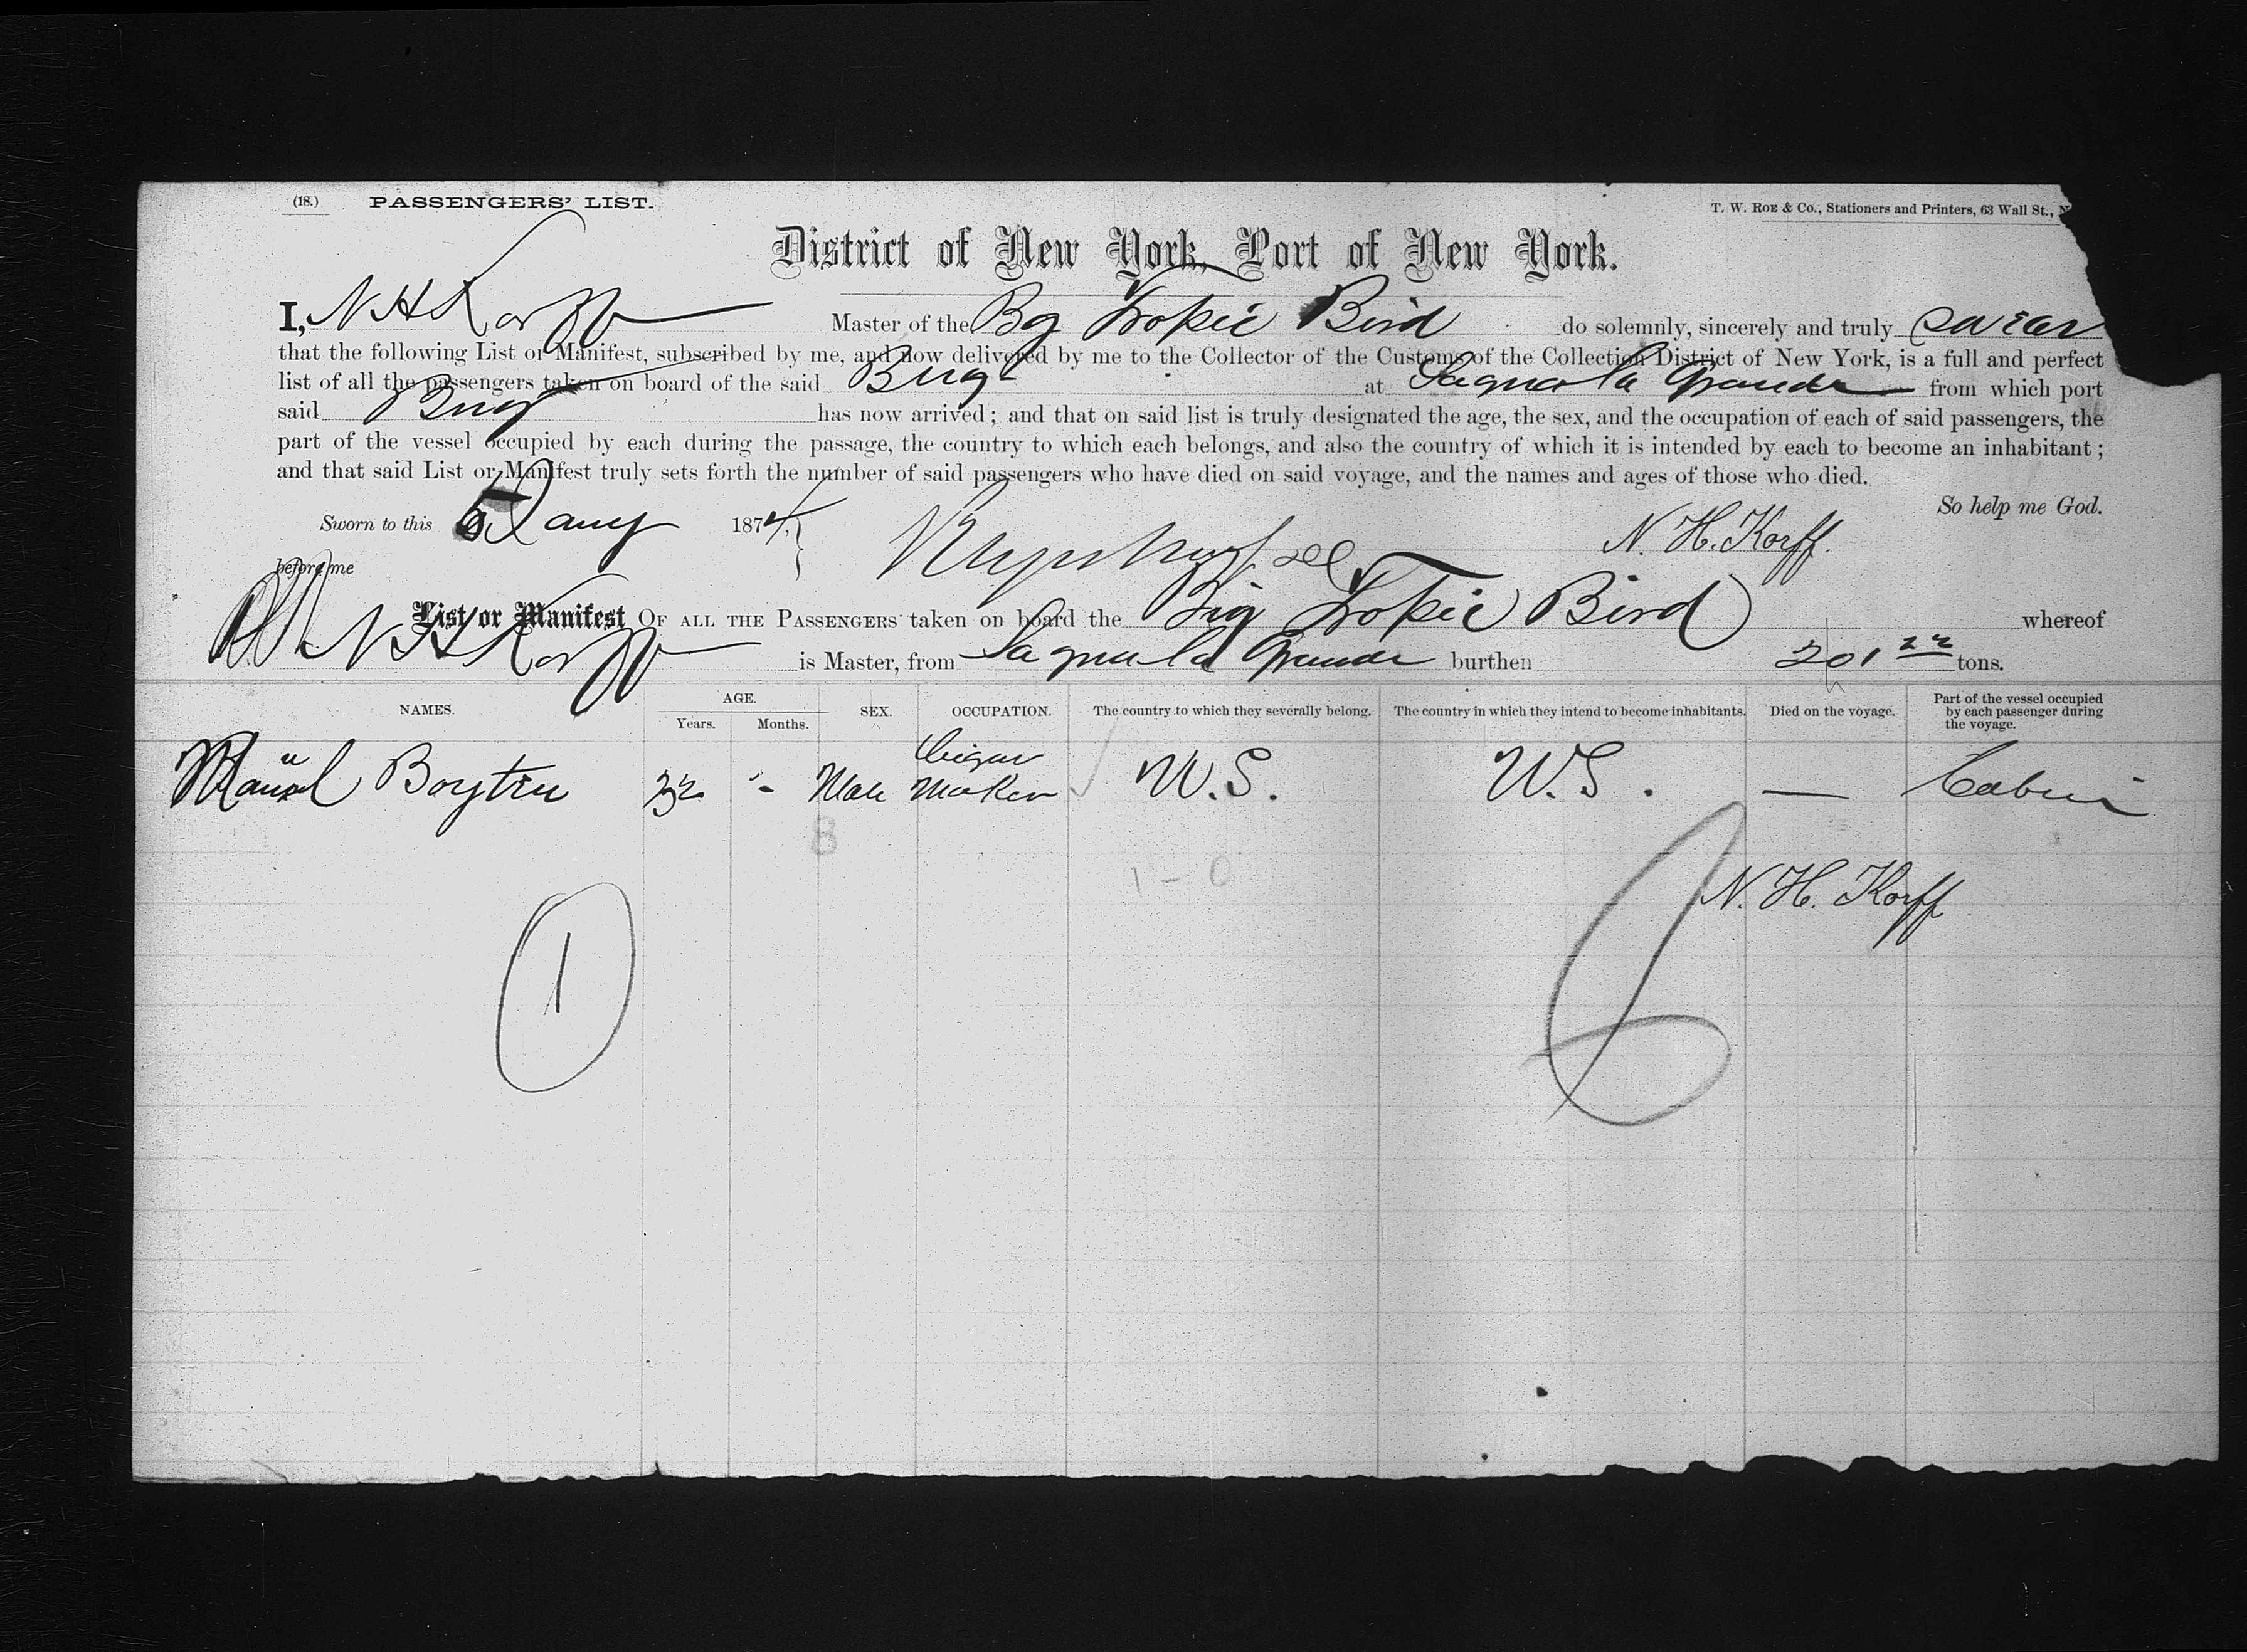 (18.) PASSENGERS' LIST.
T. W. Roe & Co., Stationers and Printers, 63 Wall St., N
District of New York, Port of New York.
I, N H Korff Master of the Bg Tropic Bird do solemnly, sincerely and truly swear
that the following List or Manifest, subscribed by me, and now delivered by me to the Collector of the Customs of the Collection District of New York, is a full and perfect
list of all the passengers taken on board of the said Brig at Sagua la Grande from which port
said Brig has now arrived; and that on said list is truly designated the age, the sex, and the occupation of each of said passengers, the
part of the vessel occupied by each during the passage, the country to which each belongs, and also the country of which it is intended by each to become an inhabitant;
and that said List or Manifest truly sets forth the number of said passengers who have died on said voyage, and the names and ages of those who died.
So help me God.
Sworn to this 5 Jany 1874, N. H. Korff.
before me
List or Manifest OF ALL THE PASSENGERS taken on board the Brig Tropic Bird whereof
N H Korff is Master, from Sagua la Grande burthen 201 22 tons.
NAMES. AGE. Years. Months. SEX. OCCUPATION. The country to which they severally belong. The country in which they intend to become inhabitants. Died on the voyage. Part of the vessel occupied by each passenger during the voyage.
Manuel Boytin 32 - Male Cigar Maker U.S. U.S. — Cabin
8
1 - 0
N. H. Korff
1
6